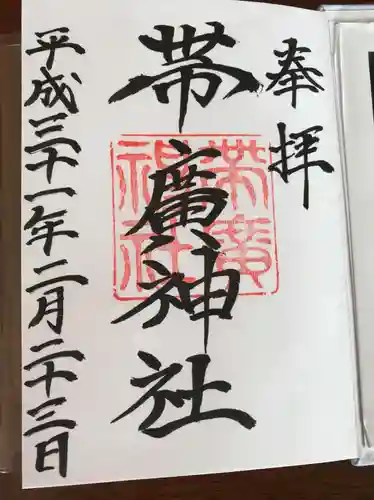 奉拝
帯廣神社
帯廣
神社
平成三十一年二月二十三日